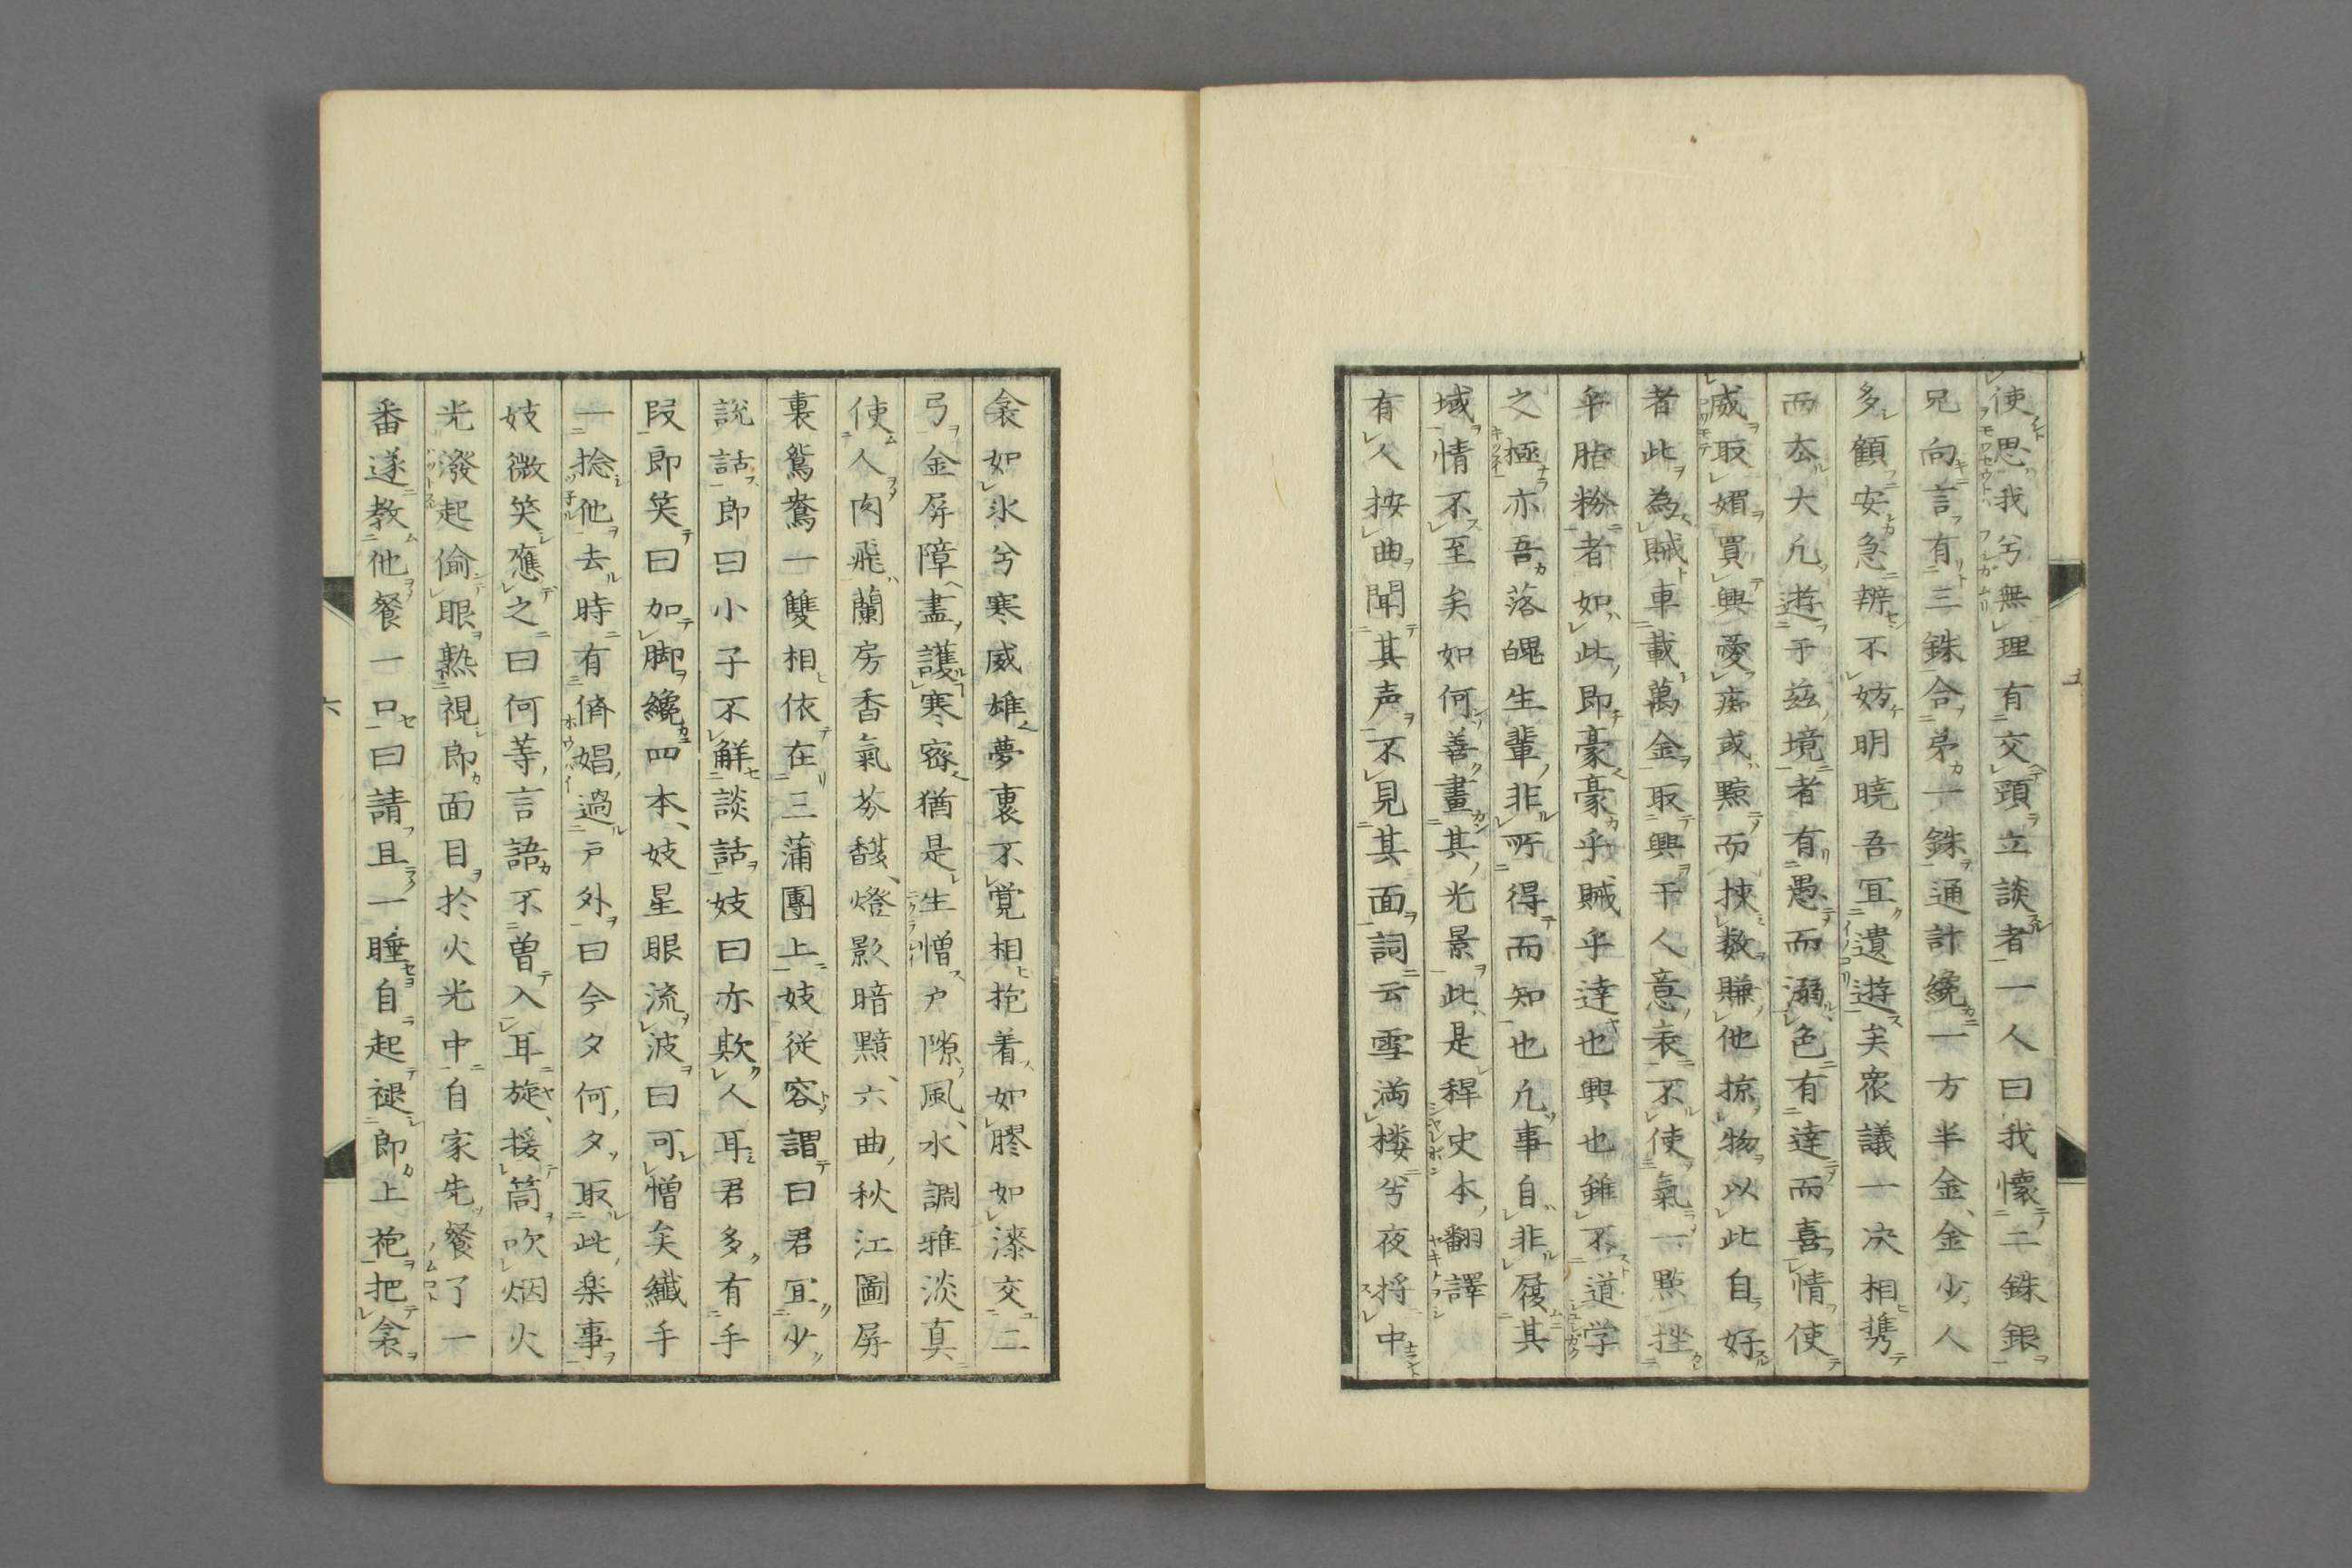 使思我兮無理有交頭立談者一人曰我懷二銖銀
兄向言有三銖合弟一銖通計纔一方半金金少人
多顧安急辨不妨明曉吾冝遺遊矣衆議一决相携
而厺大凡遊于茲境者有愚而溺色有達而喜情使
威取媚買興愛痴或點而揀数賺他掠物以此自好
者此為賊車載萬金取興干人意衰不使氣一點挫
乎脂粉者如此即豪豪乎賊乎達也興也雖不道学
之極亦吾落魄生輩非所得而知也凡事自非履其
域情不至矣如何善畫其光景此是稗史本翻譯
有人按曲聞其声不見其面詞云雪満楼兮夜将中
衾如氷兮寒威雄夢裏不覚相抱着如膠如漆交二
弓金屏障盡護寒密猶是生憎戸隙風水調雅淡真
使人肉飛蘭房香氣芬馥燈影暗黯六曲秋江圖屏
裏鴛鴦一雙相依在三蒲團上妓従容謂曰君冝少
說話郎曰小子不解談話妓曰亦欺人耳君多有手
段郎笑曰如脚纔四本妓星眼流波曰可憎矣纎手
一捻他去時有儕娼過戸外曰今夕何夕取此楽事
妓微笑應之曰何等言語不曽入耳旋援筒吹烟火
光潑起偷眼熟視郎面目於火光中自家先餐了一
番遂教他餐一口曰請且一睡自起褪郎上袍把衾
五
六